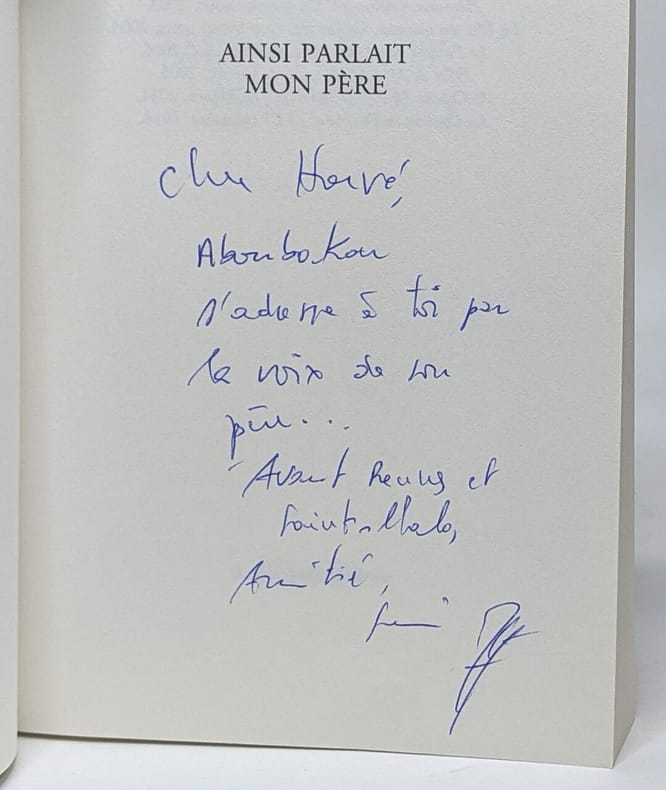 AINSI PARLAIT
MON PÈRE
Cher Hervé,
Aboubakar
s'adresse à toi par
la voix de son
père...
Avant Rennes et
Saint-Malo,
Amitié,